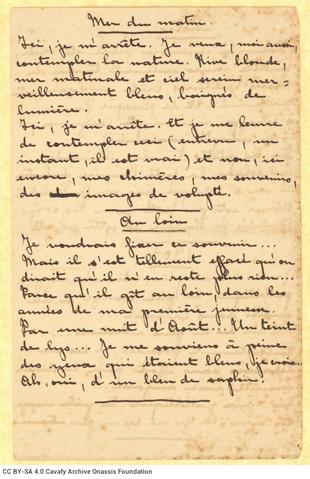 Mer du matin.
Ici, je m'arrête. Je veux, moi aussi,
contempler la nature. Rive blonde,
mer matinale et ciel serein mer-
veilleusement bleus, baignés de
lumière.
Ici, je m'arrête. Et je me leurre
de contempler ceci (entrevu, un
instant, il est vrai) et non, ici
encore, mes chimères, mes souvenirs,
des images de volupté.
Au loin
Je voudrais fixer ce souvenir...
Mais il s'est tellement effacé qu'on
dirait qu'il n'en reste plus rien...
Parce qu'il gît au loin, dans les
années de ma première jeunesse.
Par une nuit d'Août... Un teint
de lys... Je me souviens à peine
des yeux qui étaient bleus, je crois...
Ah, oui, d'un bleu de saphir.
CC BY-SA 4.0 Cavafy Archive Onassis Foundation